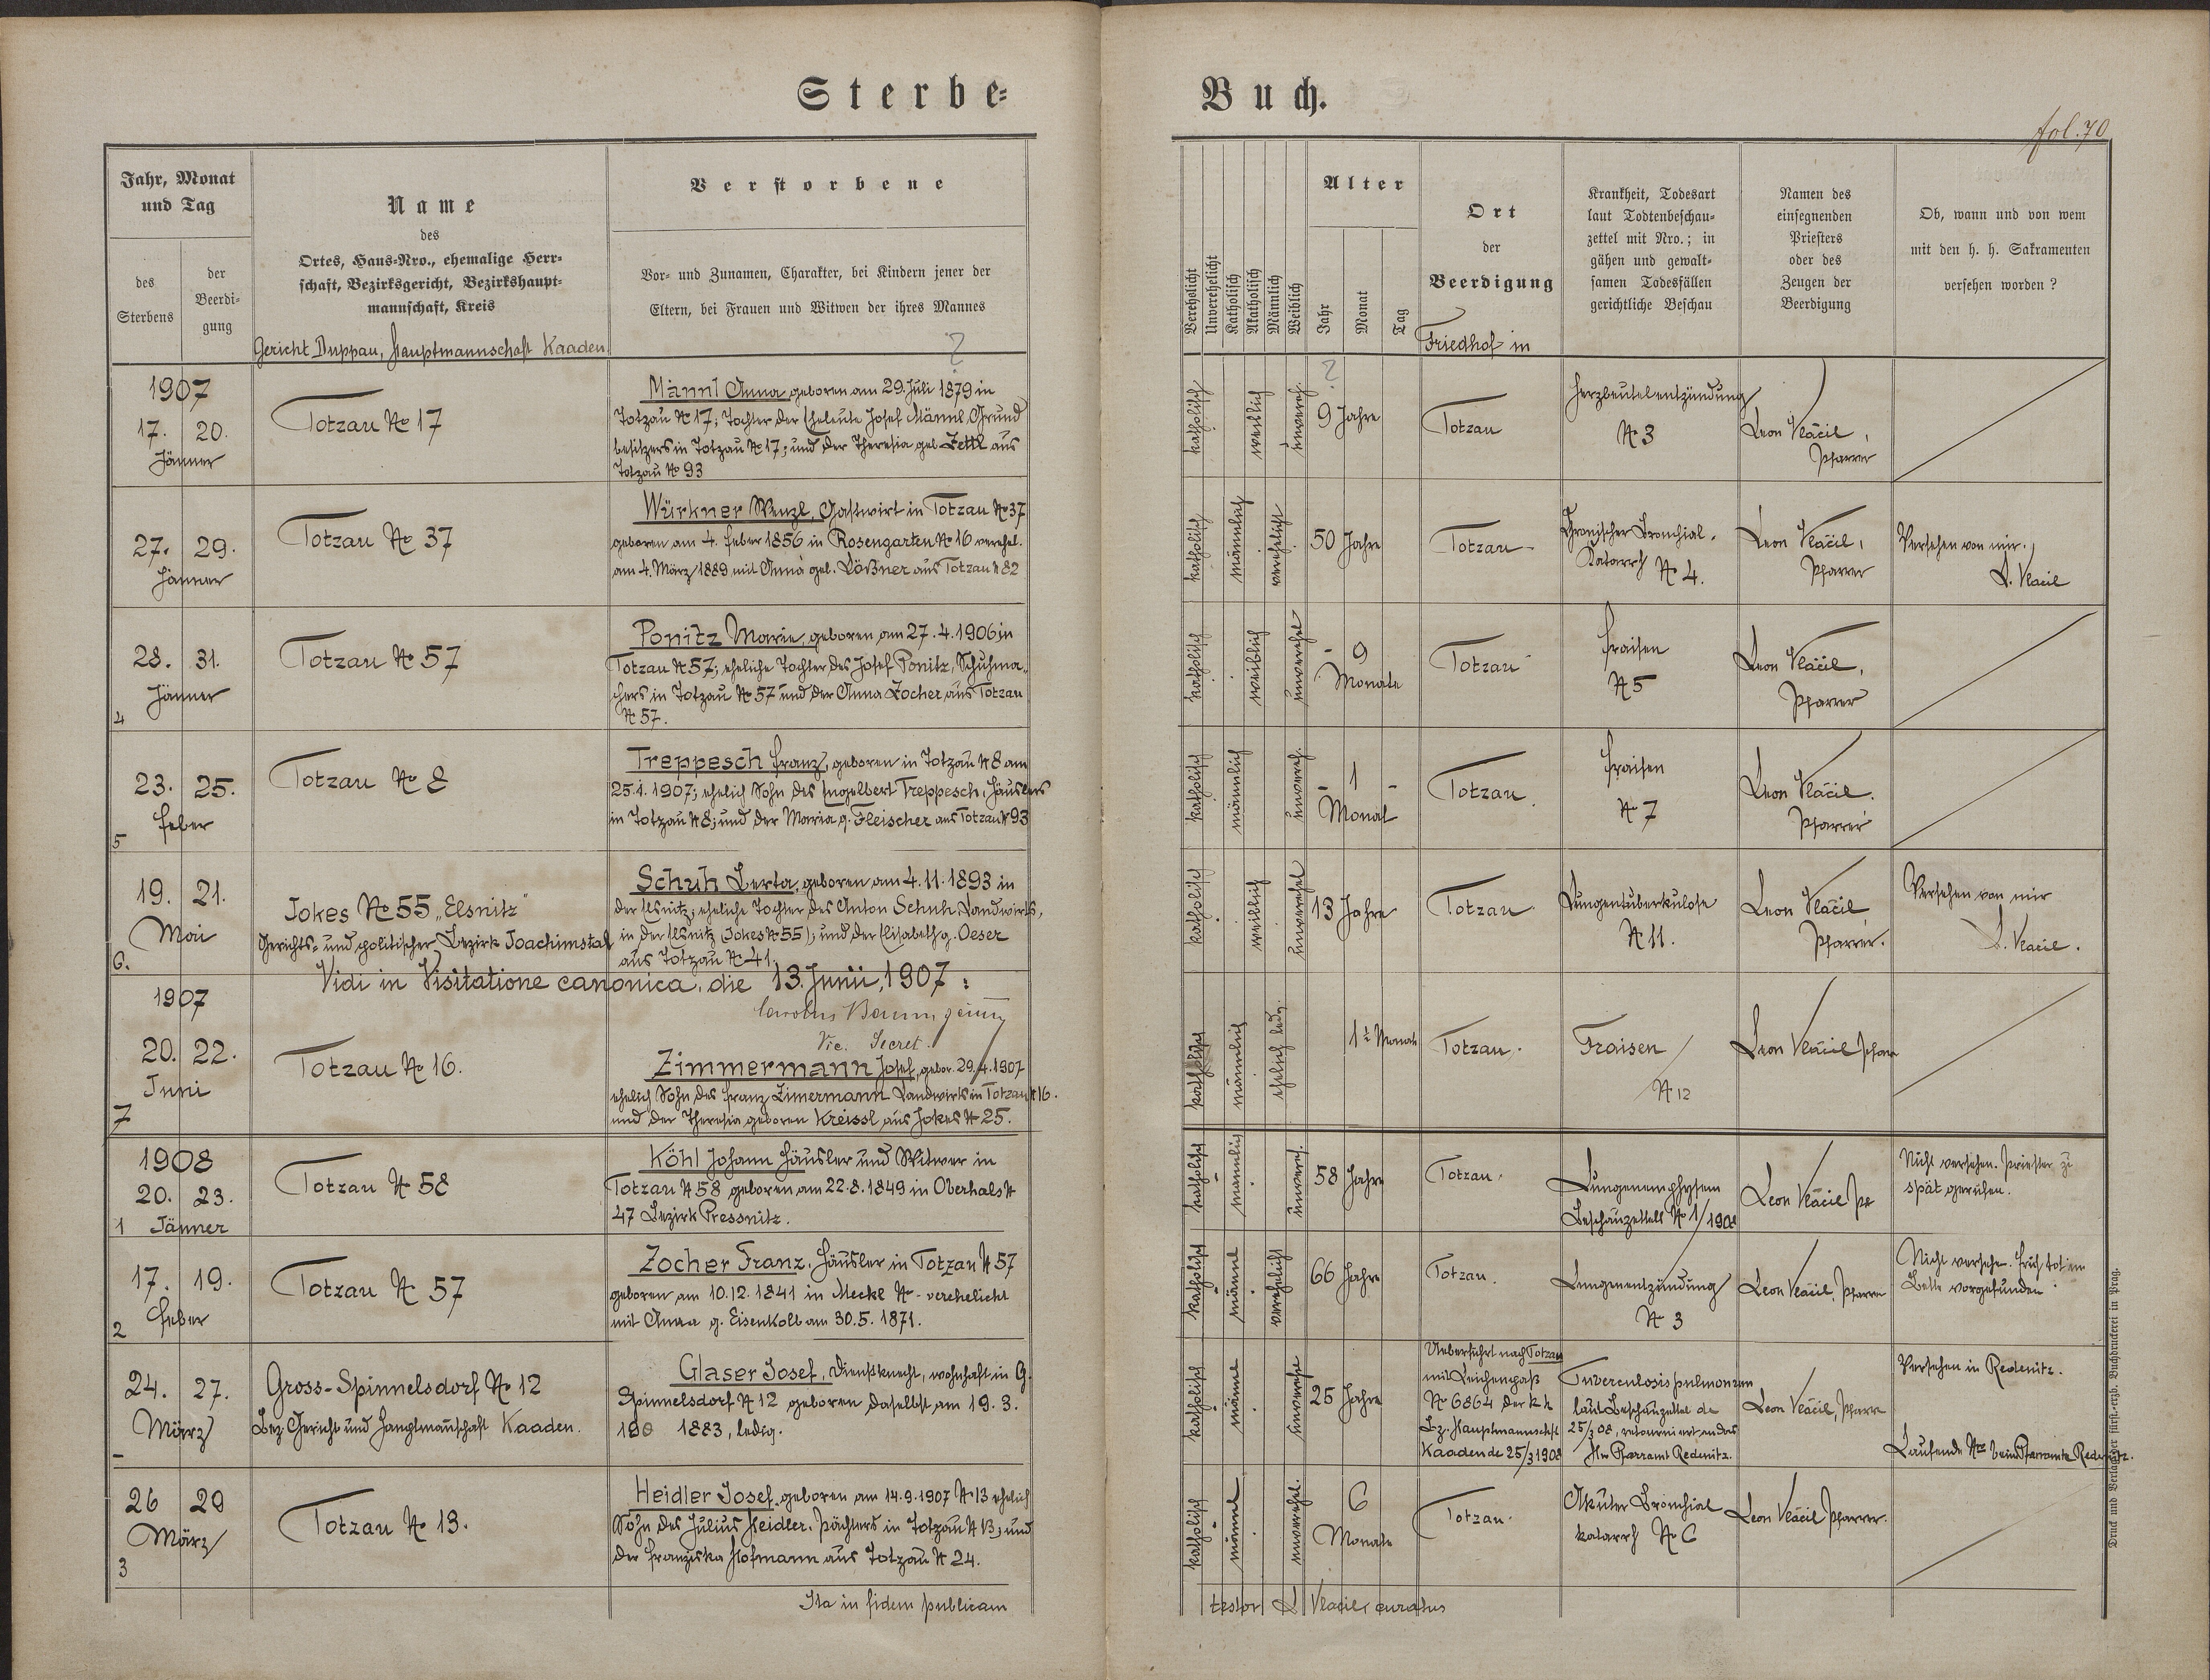 Sterbe-
Buch.
fol. 70
Jahr, Monat
und Tag
des
Sterbens
der
Beerdi-
gung
Name
des
Ortes, Haus-Nro., ehemalige Herr-
schaft, Bezirksgericht, Bezirkshaupt-
mannschaft, Kreis
Gericht Duppau, Hauptmannschaft Kaaden.
Verstorbene
Vor- und Zunamen, Charakter, bei Kindern jener der
Eltern, bei Frauen und Witwen der ihres Mannes
?
Verehelicht
Unverehelicht
Katholisch
Akatholisch
Männlich
Weiblich
Alter
Jahr
Monat
Tag
Ort
der
Beerdigung
Friedhof in
Krankheit, Todesart
laut Todtenbeschau-
zettel mit Nro.; in
gähen und gewalt-
samen Todesfällen
gerichtliche Beschau
Namen des
einsegnenden
Priesters
oder des
Zeugen der
Beerdigung
Ob, wann und von wem
mit den h. h. Sakramenten
versehen worden?
1907
17. 20.
Jänner
Totzau No 17
Männl Anna geboren am 29. Juli 1879 in
Totzau No 17; Tochter der Eheleute Josef Männl, Grund
besitzers in Totzau No 17; und der Theresia geb. Zettl aus
Totzau No 93
katholisch
weiblich
unvereh.
?
9 Jahre
Totzau
Herzbeutelentzündung
No 3
Leon Vlačil,
Pfarrer
27. 29.
Jänner
Totzau No 37
Würkner Wenzl, Gastwirt in Totzau No 37
geboren am 4. Feber 1856 in Rosengarten No 16 verehel.
am 4. März 1889 mit Anna geb. Lößner aus Totzau No 82
katholisch
männlich
verehelicht
50 Jahre
Totzau
Chronischer Bronchial-
Katarrh No 4.
Leon Vlačil,
Pfarrer
Versehen von mir.
L. Vlačil
28. 31.
Jänner
4
Totzau No 57
Ponitz Marie, geboren am 27.4.1906 in
Totzau No 57; eheliche Tochter des Josef Ponitz, Schuhma-
chers in Totzau No 57 und der Anna Zocher aus Totzau
No 57.
katholisch
weiblich
unverehel
- 9
Monate
Totzau
Fraisen
No 5
Leon Vlačil,
Pfarrer
23. 25.
Feber
5
Totzau No 8
Treppesch Franz, geboren in Totzau No 8 am
25.1.1907; ehelich Sohn des Engelbert Treppesch, Häuslers
in Totzau No 8; und der Maria g. Fleischer aus Totzau No 93
katholisch
männlich
unvereh.
- 1 -
Monat
Totzau
Fraisen
No 7
Leon Vlačil.
Pfarrer
19. 21.
Mai
6.
Jokes No 55 „Elsnitz"
Gerichts- und politischer Bezirk Joachimstal
Schuh Berta, geboren am 4.11.1893 in
der Elsnitz; eheliche Tochter des Anton Schuh, Landwirts,
in der Elsnitz (Jokes No 55); und der Elisabeth g. Oeser
aus Totzau No 41.
katholisch
weiblich
unverehel
13 Jahre
Totzau
Lungentuberkulose
No 11.
Leon Vlačil
Pfarrer.
Versehen von mir
L. Vlačil.
Vidi in Visitatione canonica, die 13. Junii, 1907:
Vic. Secret.
1907
20. 22.
Juni
7
Totzau No 16.
Zimmermann Josef, gebor. 29.4.1907
ehelich Sohn des Franz Zimermann Landwirts in Totzau No 16.
und der Theresia geboren Kreissl aus Jokes No 25.
katholisch
männlich
ehelich led.
1½ Monate
Totzau.
Fraisen
No 12
Leon Vlačil Pfarr
1908
20. 23.
1 Jänner
Totzau No 58
Köhl Johann Häusler und Witwer in
Totzau No 58 geboren am 22.8.1849 in Oberhals No
47 Bezirk Pressnitz.
katholisch
männlich
unvereh.
58 Jahre
Totzau.
Lungenemphysem
Beschauzettels No 1/1908
Leon Vlačil Pf
Nicht versehen. Priester zu
spät gerufen.
17. 19.
Feber
2
Totzau No 57
Zocher Franz. Häusler in Totzau No 57
geboren am 10.12.1841 in Meckl No - verehelicht
mit Anna g. Eisenkolb am 30.5.1871.
katholisch
männl
verehelicht
66 Jahre
Totzau.
Lungenentzündung
No 3
Leon Vlačil, Pfarre
Nicht versehen. Früh tot im
Bette vorgefunden
24. 27.
März
-
Gross-Spinnelsdorf No 12
Bez. Gericht und Hauptmannschaft Kaaden.
Glaser Josef, Dienstknecht, wohnhaft in G.
Spinnelsdorf No 12 geboren daselbst am 19.3.
1883, ledig.
katholisch
männl
unverehe
25 Jahre
Ueberführt nach Totzau
mit Leichenpaß
No 6864 der k k
Bz. Hauptmannschft
Kaaden de 25/3 1908
Tuberculosis pulmonum
laut Beschauzettel de
25/3 08, retourniert an das
Pfarramt Redenitz.
Leon Vlačil, Pfarre
Versehen in Redenitz.
Laufende Nro beim Pfarramte Redenitz.
26 29
März
3
Totzau No 13.
Heidler Josef, geboren am 14.9.1907 No 13 ehelich
Sohn des Julius Heidler, Pächters in Totzau No 13; und
der Franziska Hofmann aus Totzau No 24.
katholisch
männl
unverehel.
6
Monate
Totzau.
Akuter Bronchial
katarrh No 6
Leon Vlačil Pfarrer.
Ita in fidem publicam
testor L Vlačil, curatus
Druck und Verlag der fürst.-erzb. Buchdruckerei in Prag.